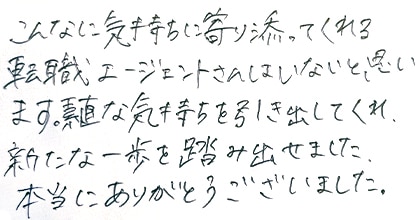 こんなに気持ちに寄り添ってくれる
転職エージェントさんはいないと思い
ます。素直な気持ちを引き出してくれ、
新たな一歩を踏み出せました。
本当にありがとうございました。